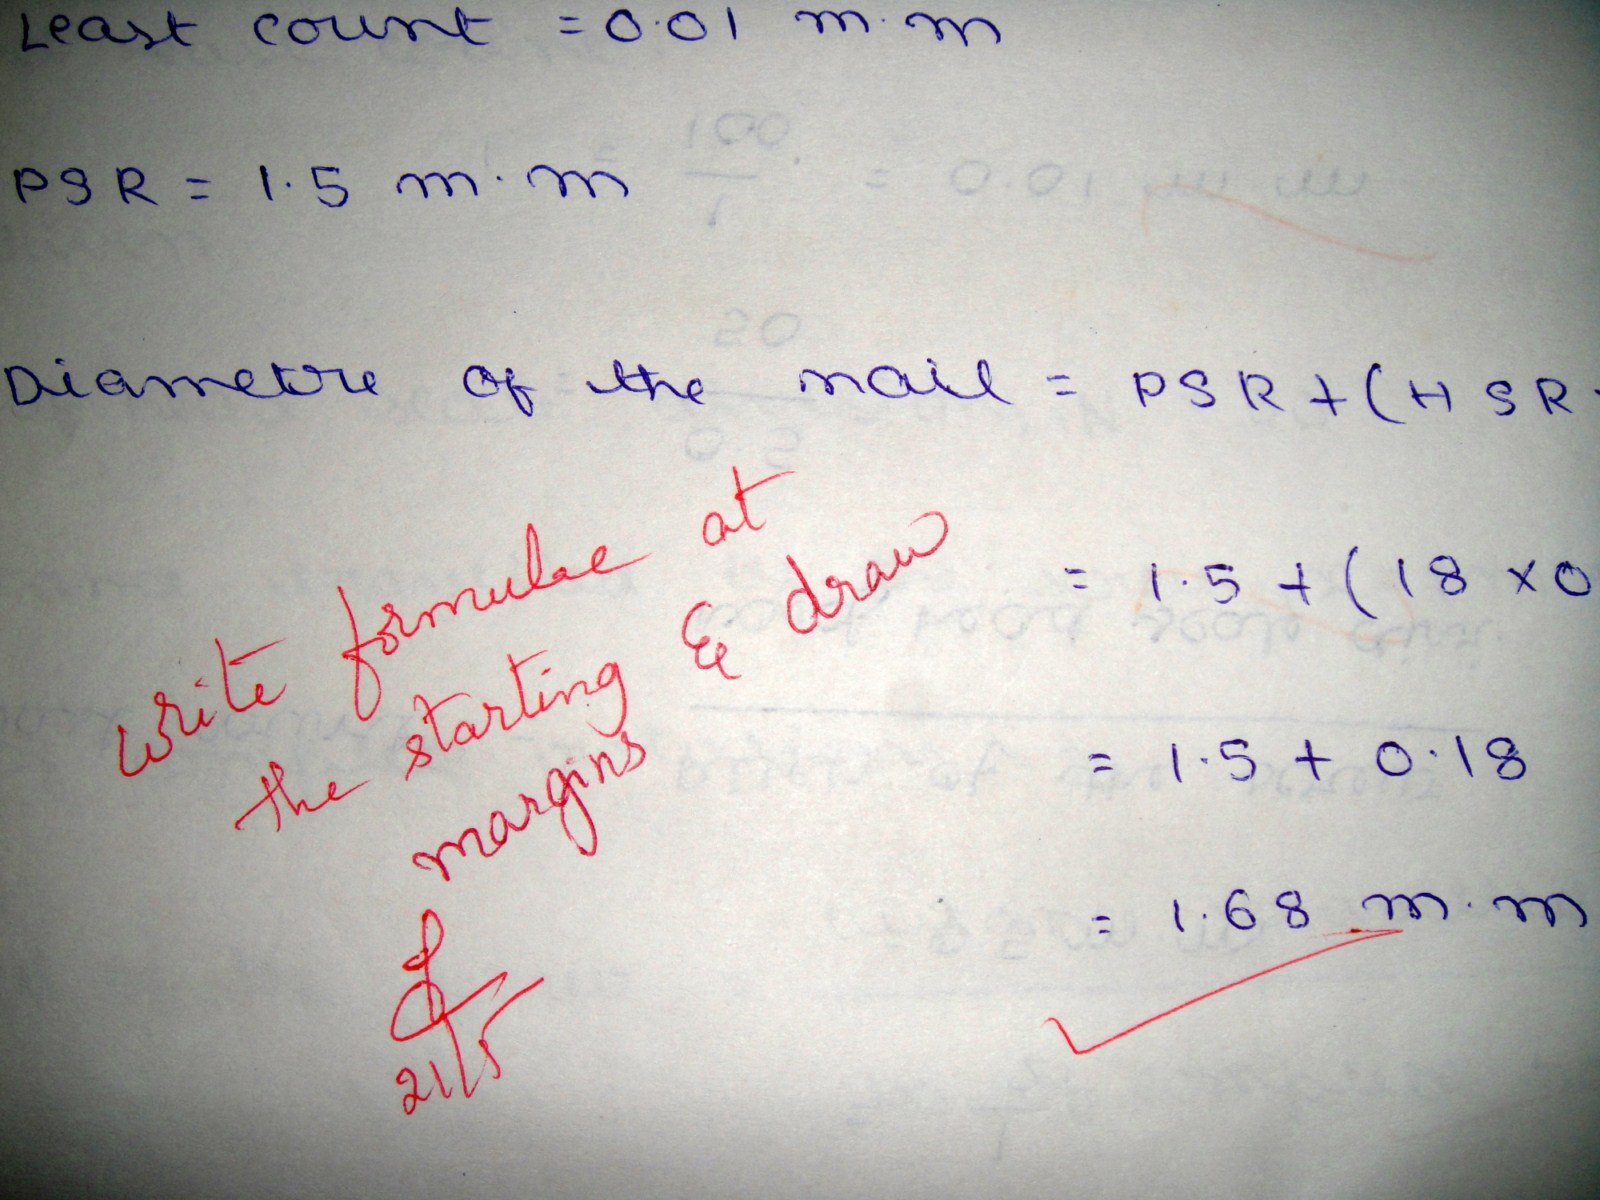 Least count = 0.01 m.m
PSR = 1.5 m.m
Diametre of the nail = PSR + (HSR
= 1.5 + (18 x 0
= 1.5 + 0.18
= 1.68 m.m
write formulae at
the starting & draw
margins
21/5